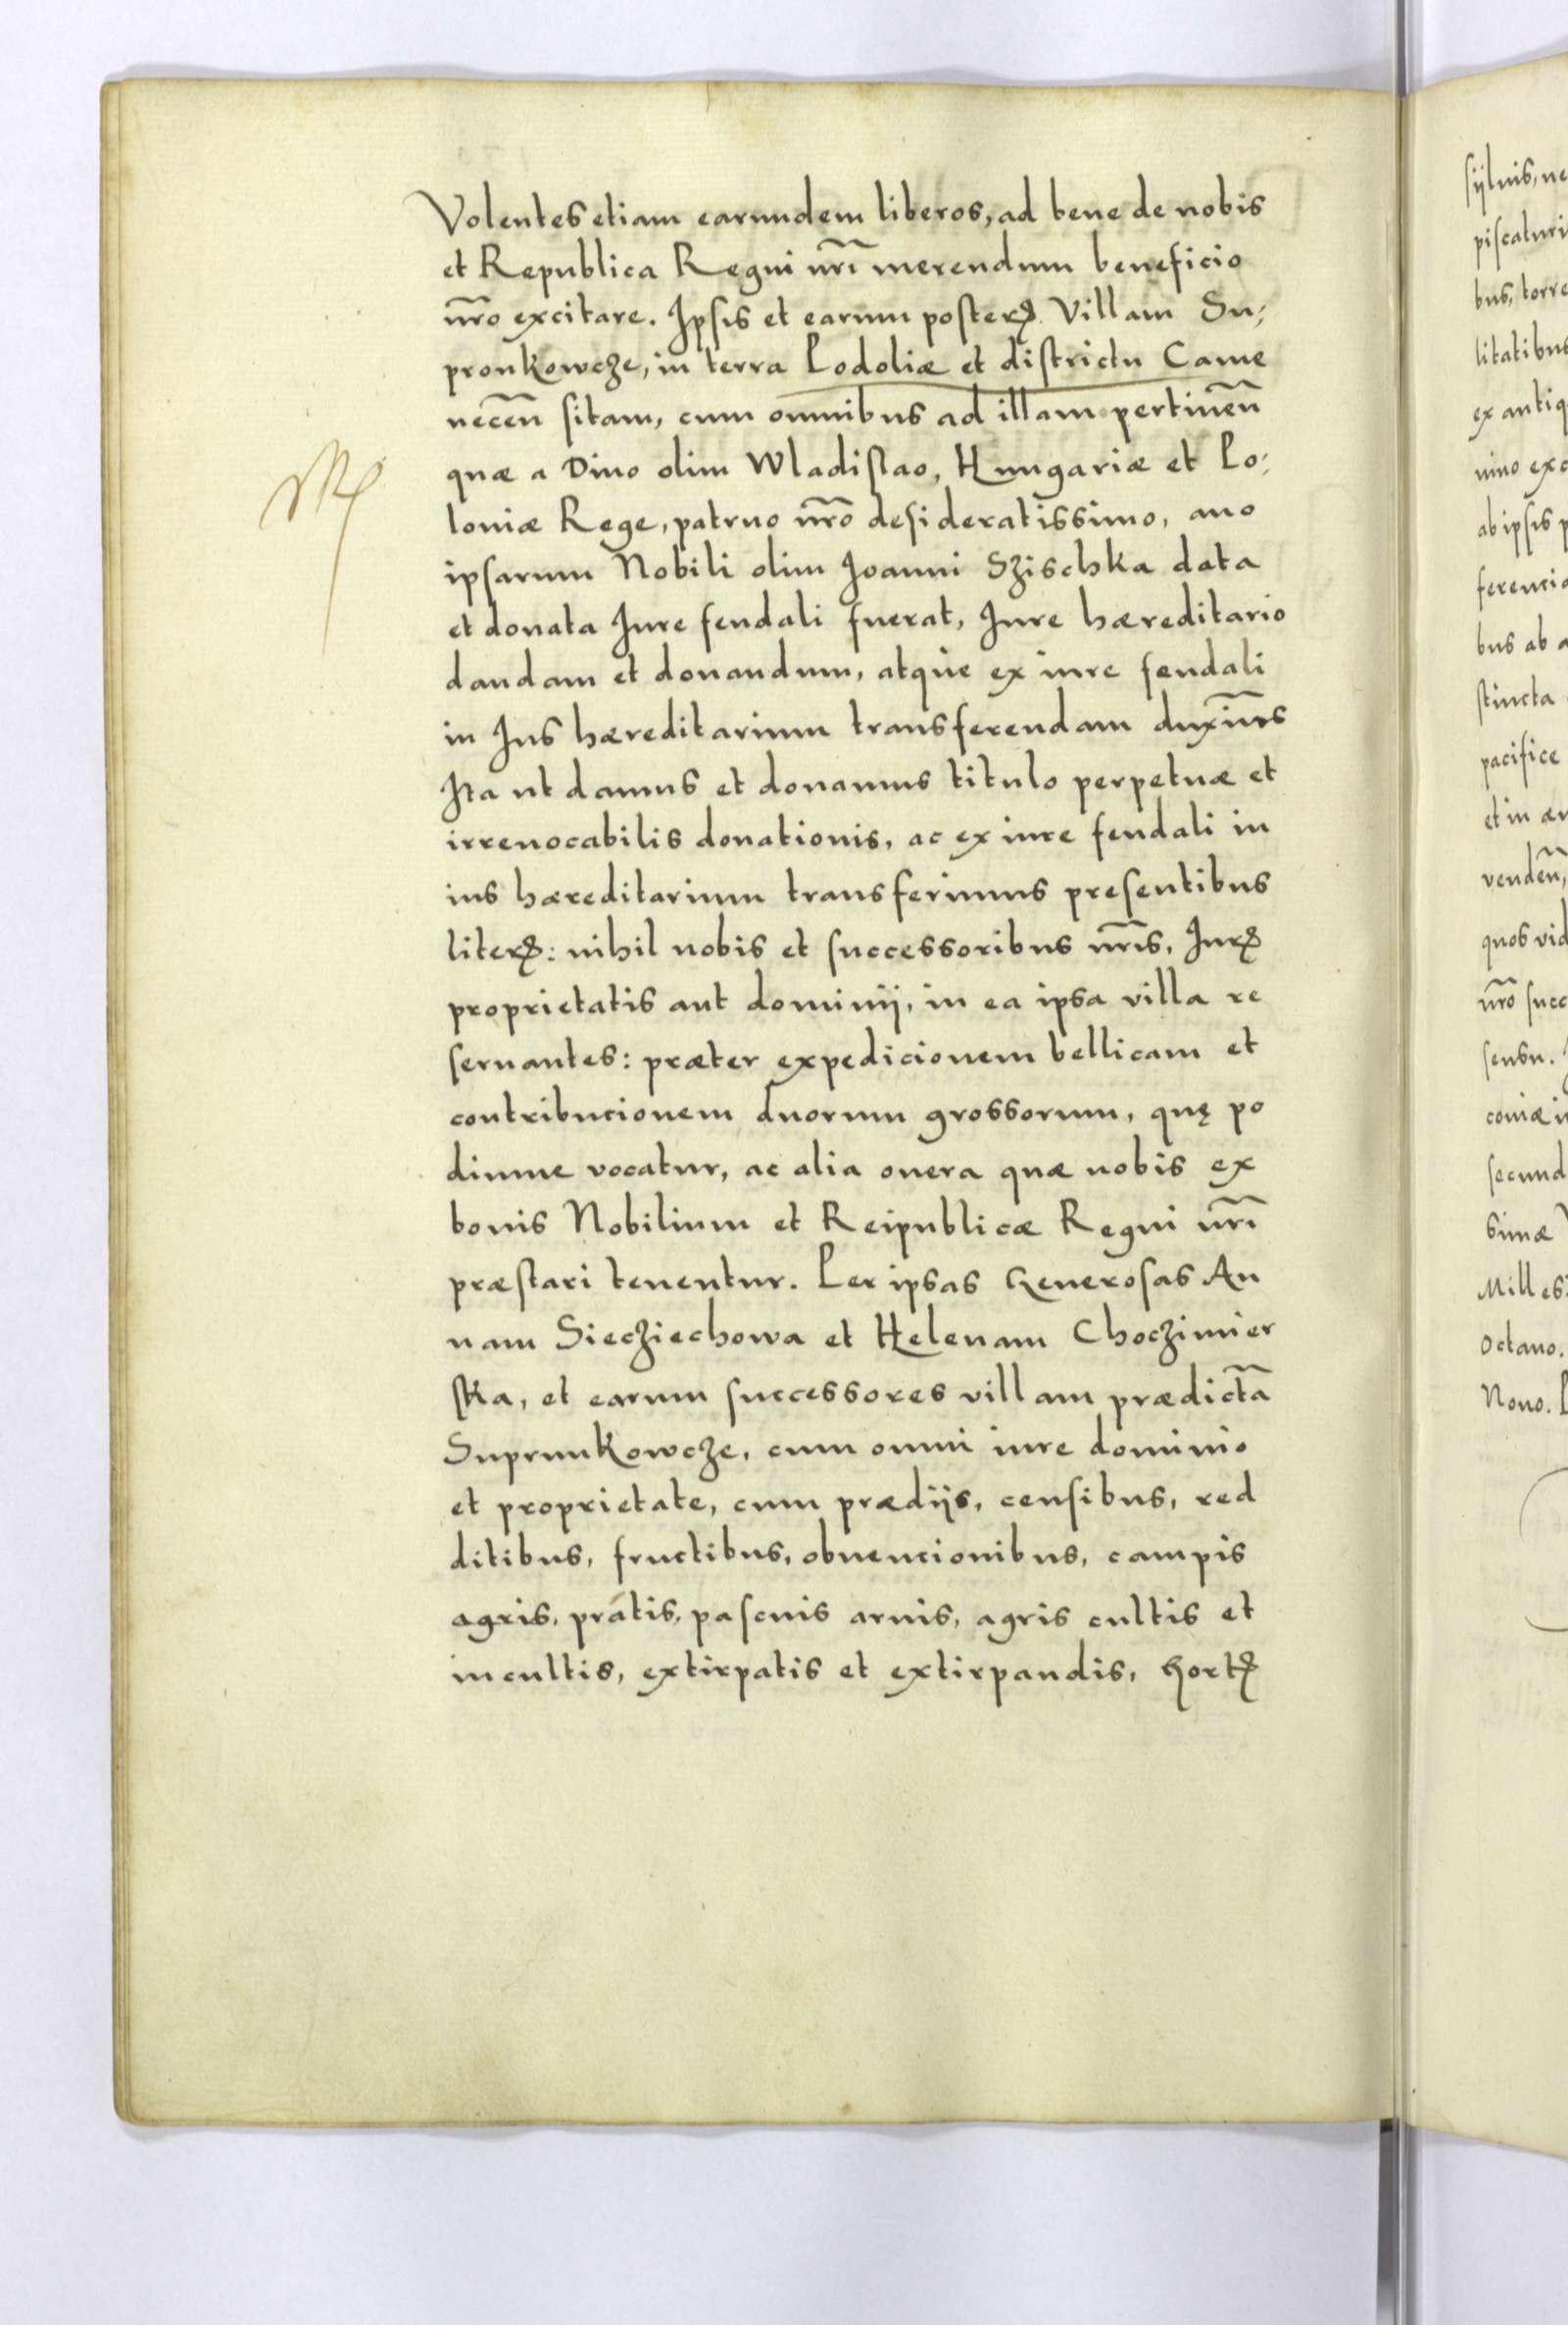 Volentes etiam earundem liberos, ad bene de nobis
et Republica Regni nr̃i merendum beneficio
nr̃o excitare. Ipsis et earum posterꝭ Villam Su;
pronkowcze, in terra Podoliæ et districtu Came
necen̄ sitam, cum omnibus ad illam pertinen̄
quæ a Diuo olim Wladislao, Hungariæ et Po;
loniæ Rege, patruo nr̃o desideratissimo, auo
ipsarum Nobili olim Joanni Szischka data
et donata Jure feudali fuerat, Jure hæreditario
dandam et donandum, atque ex iure feudali
in Jus hæreditarium transferendam duxim̃s
Ita ut damus et donamus titulo perpetuæ et
irreuocabilis donationis, ac ex iure feudali in
ius hæreditarium transferimus presentibus
literꝭ: nihil nobis et successoribus nr̃is, Jurꝭ
proprietatis aut dominij, in ea ipsa villa re
seruantes: præter expedicionem bellicam et
contribucionem duorum grossorum, quę po
dimne vocatur, ac alia onera quæ nobis ex
bonis Nobilium et Reipublicæ Regni nr̃i
præstari tenentur. Per ipsas Generosas An
nam Siecziechowa et Helenam Choczimier
ska, et earum successores villam prædictã
Suprunkowcze, cum omni iure dominio
et proprietate, cum prædijs, censibus, red
ditibus, fructibus, obuencionibus, campis
agris, pratis, pascuis aruis, agris cultis et
incultis, extirpatis et extirpandis, hortꝭ
sijluis, ne
piscaturi
bus, torre
litatibus
ex antiq
nino exc
ab ipsis p
ferencia
bus ab a
stincta
pacifice
et in æu
venden̄,
quos vid
nr̃o succ
sensu.
coniæ i
secund
simæ
Milles
Octauo.
Nono. P